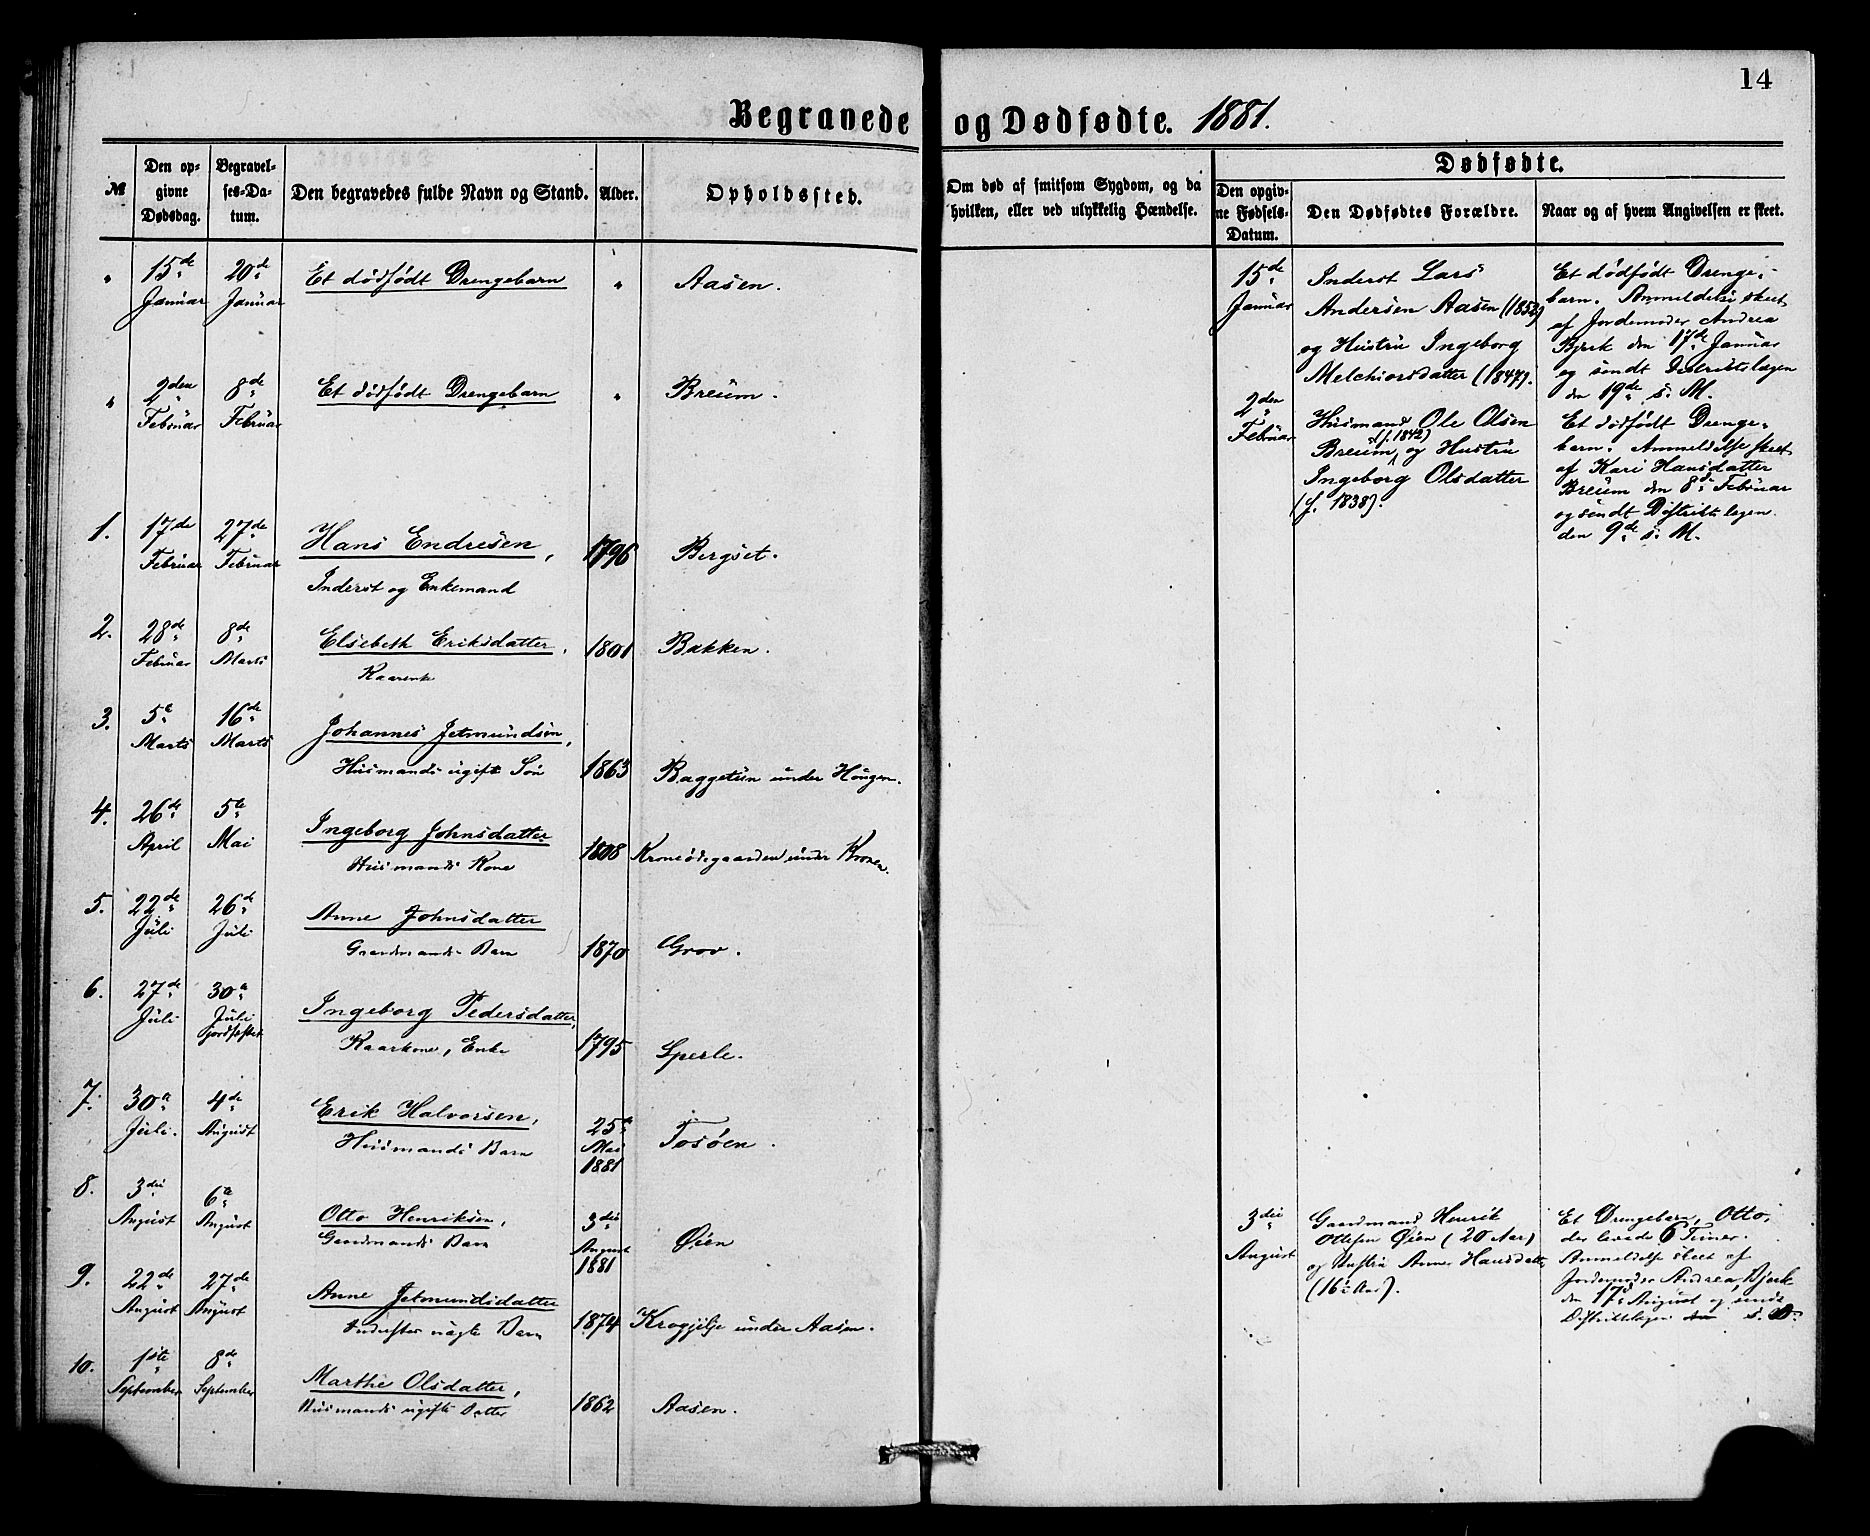 14
Begravede og Dødfødte. 1881.
№
Den opgivne Dødsdag.
Begravelses-Datum.
Den begravedes fulde Navn og Stand.
Alder.
Opholdssted.
Om død af smitsom Sygdom, og da hvilken, eller ved ulykkelig Hændelse.
Dødfødte.
Den opgivne Fødsels-Datum.
Den Dødfødtes Forældre.
Naar og af hvem Angivelsen er skeet.
" 15de Januar 20de Januar Et dödfödt Drengebarn " Aasen.
15de Januar
Inderst Lars
Andersen Aasen (1852)
og Hustru Ingeborg
Melchiorsdatter (1847).
Et dödfödt Drenge-
barn. Anmeldelse skeet
af Jordemoder Andrea
Bjerk den 17de Januar
og sendt Distriktslægen
den 19de s. M.
" 2den Februar 8de Februar Et dödfödt Drengebarn " Breum.
2den Februar
Husmand Ole Olsen
Breum (f. 1842) og Hustru
Ingeborg Olsdatter
(f. 1838).
Et dödfödt Drenge-
barn. Anmeldelse skeet
af Kari Hansdatter
Breum den 8de Februar
og sendt Distriktslægen
den 9de s. M.
1. 17de Februar 27de Februar Hans Endresen, 1796 Bergset.
Inderst og Enkemand
2. 28de Februar 8de Marts Elsebeth Eriksdatter, 1801 Bakken.
Kaarenke
3. 5te Marts 16de Marts Johannes Jetmundsen,
Husmands ugifte Sön 1863 Baggetun under Hougen.
4. 26de April 5te Mai Ingeborg Johnsdatter
Husmands Kone 1808 Kroneödegaarden under Kronen.
5. 22de Juli 26de Juli Anne Johnsdatter
Gaardmands Barn 1870 Grov.
6. 27de Juli 30te Juli jordfæstet Ingeborg Pedersdatter,
Kaarkone, Enke 1795 Sperle.
7. 30te Juli. 4de August Erik Halvorsen,
Husmands Barn 25de Mai 1881 Tosöen.
8. 3die August 6te August Otto Henriksen,
Gaardmands Barn 3die August 1881 Øien
3die August
Gaardmand Henrik
Ottesen Øien (20 Aar)
og Hustru Anne Hansdatter
(16 Aar).
Et Drengebarn, Otto,
der levede 6 Timer.
Anmeldelse skeet af
Jordemoder Andrea Bjerk
den 17de August og sendt
Distriktslægen s. D.
9. 22de August 27de August Anne Jetmundsdatter
Inderstes uægte Barn 1874 Krogjilje under Aasen.
10. 1ste September 8de September Marthe Olsdatter,
Husmands ugifte Datter 1862 Aasen.